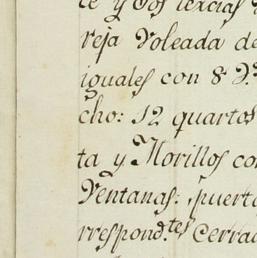 te y dos tercias
reja Voleada de
iguales con 8
cho: 12 quartos
ta y Morillos co
Ventanas: puerta
rrespond.tes Cerra